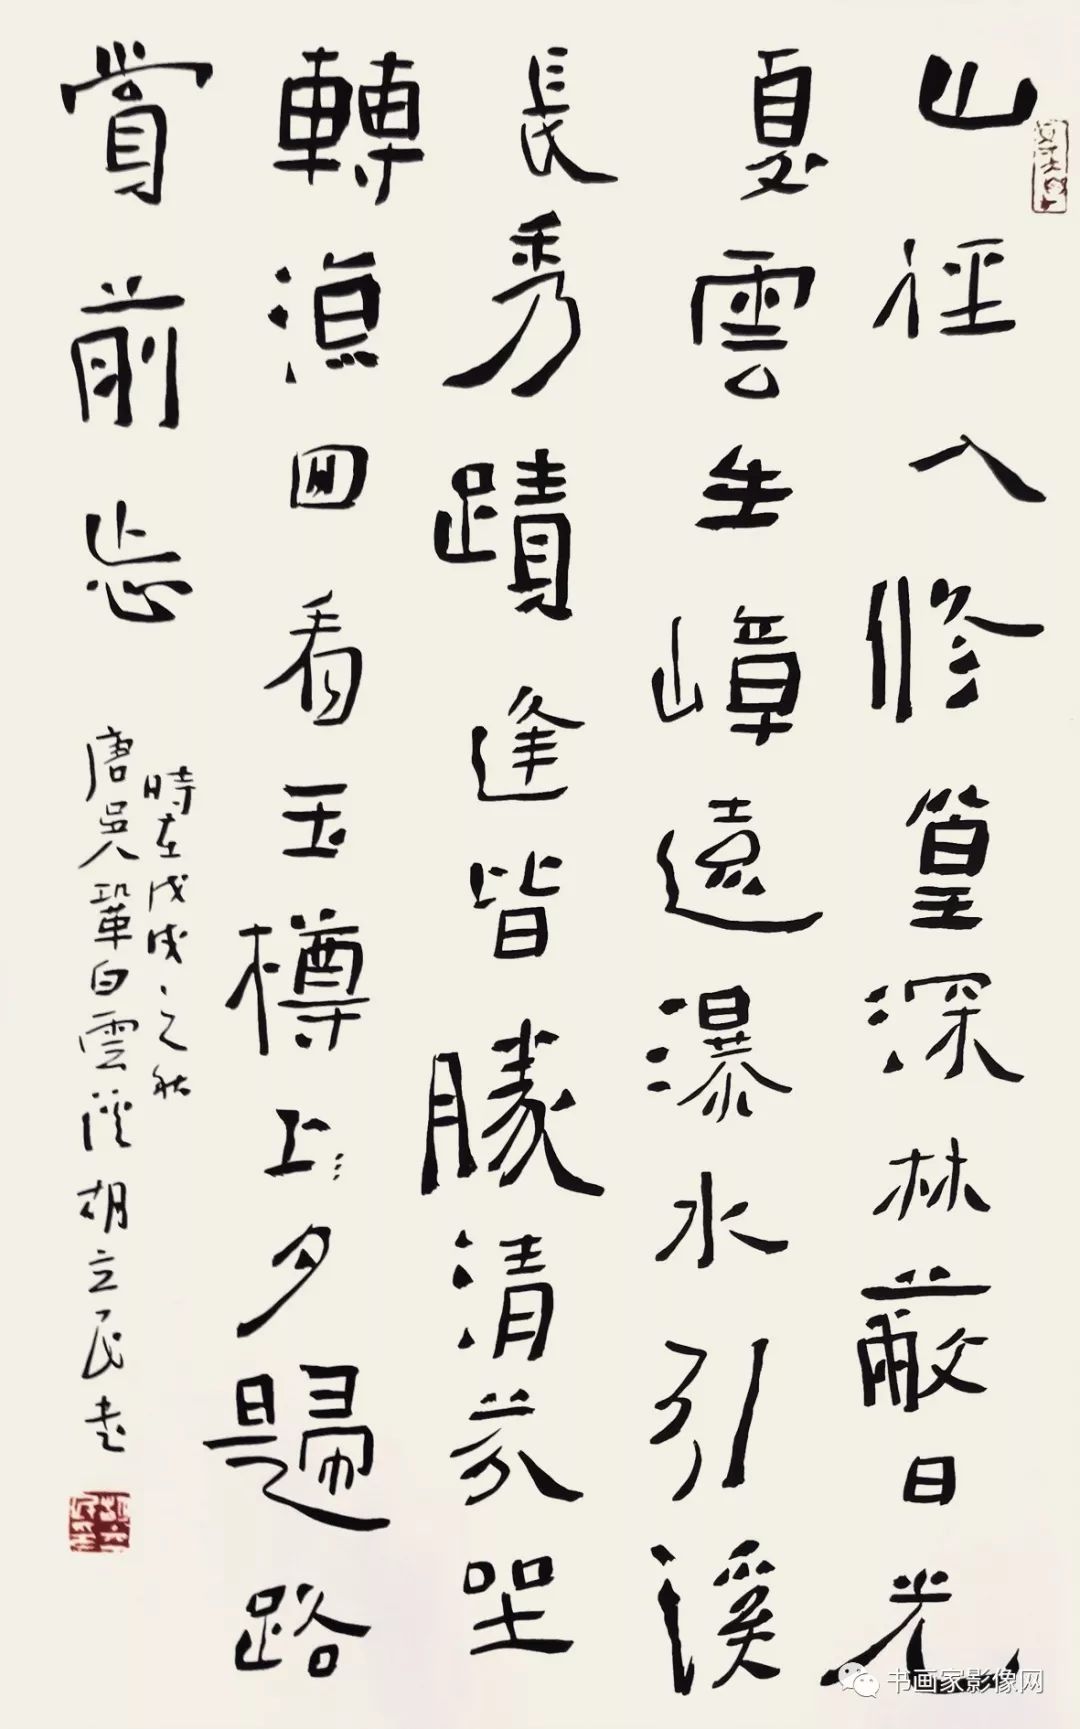 山径入修篁深林蔽日光
夏雲生嶂遠瀑水引溪
長秀蹟逢皆勝清芬坐
轉涼回看玉樽上夕歸路
賞前忘
時在戊戌之秋
唐吳鞏白雲溪胡立民書
书画家影像网